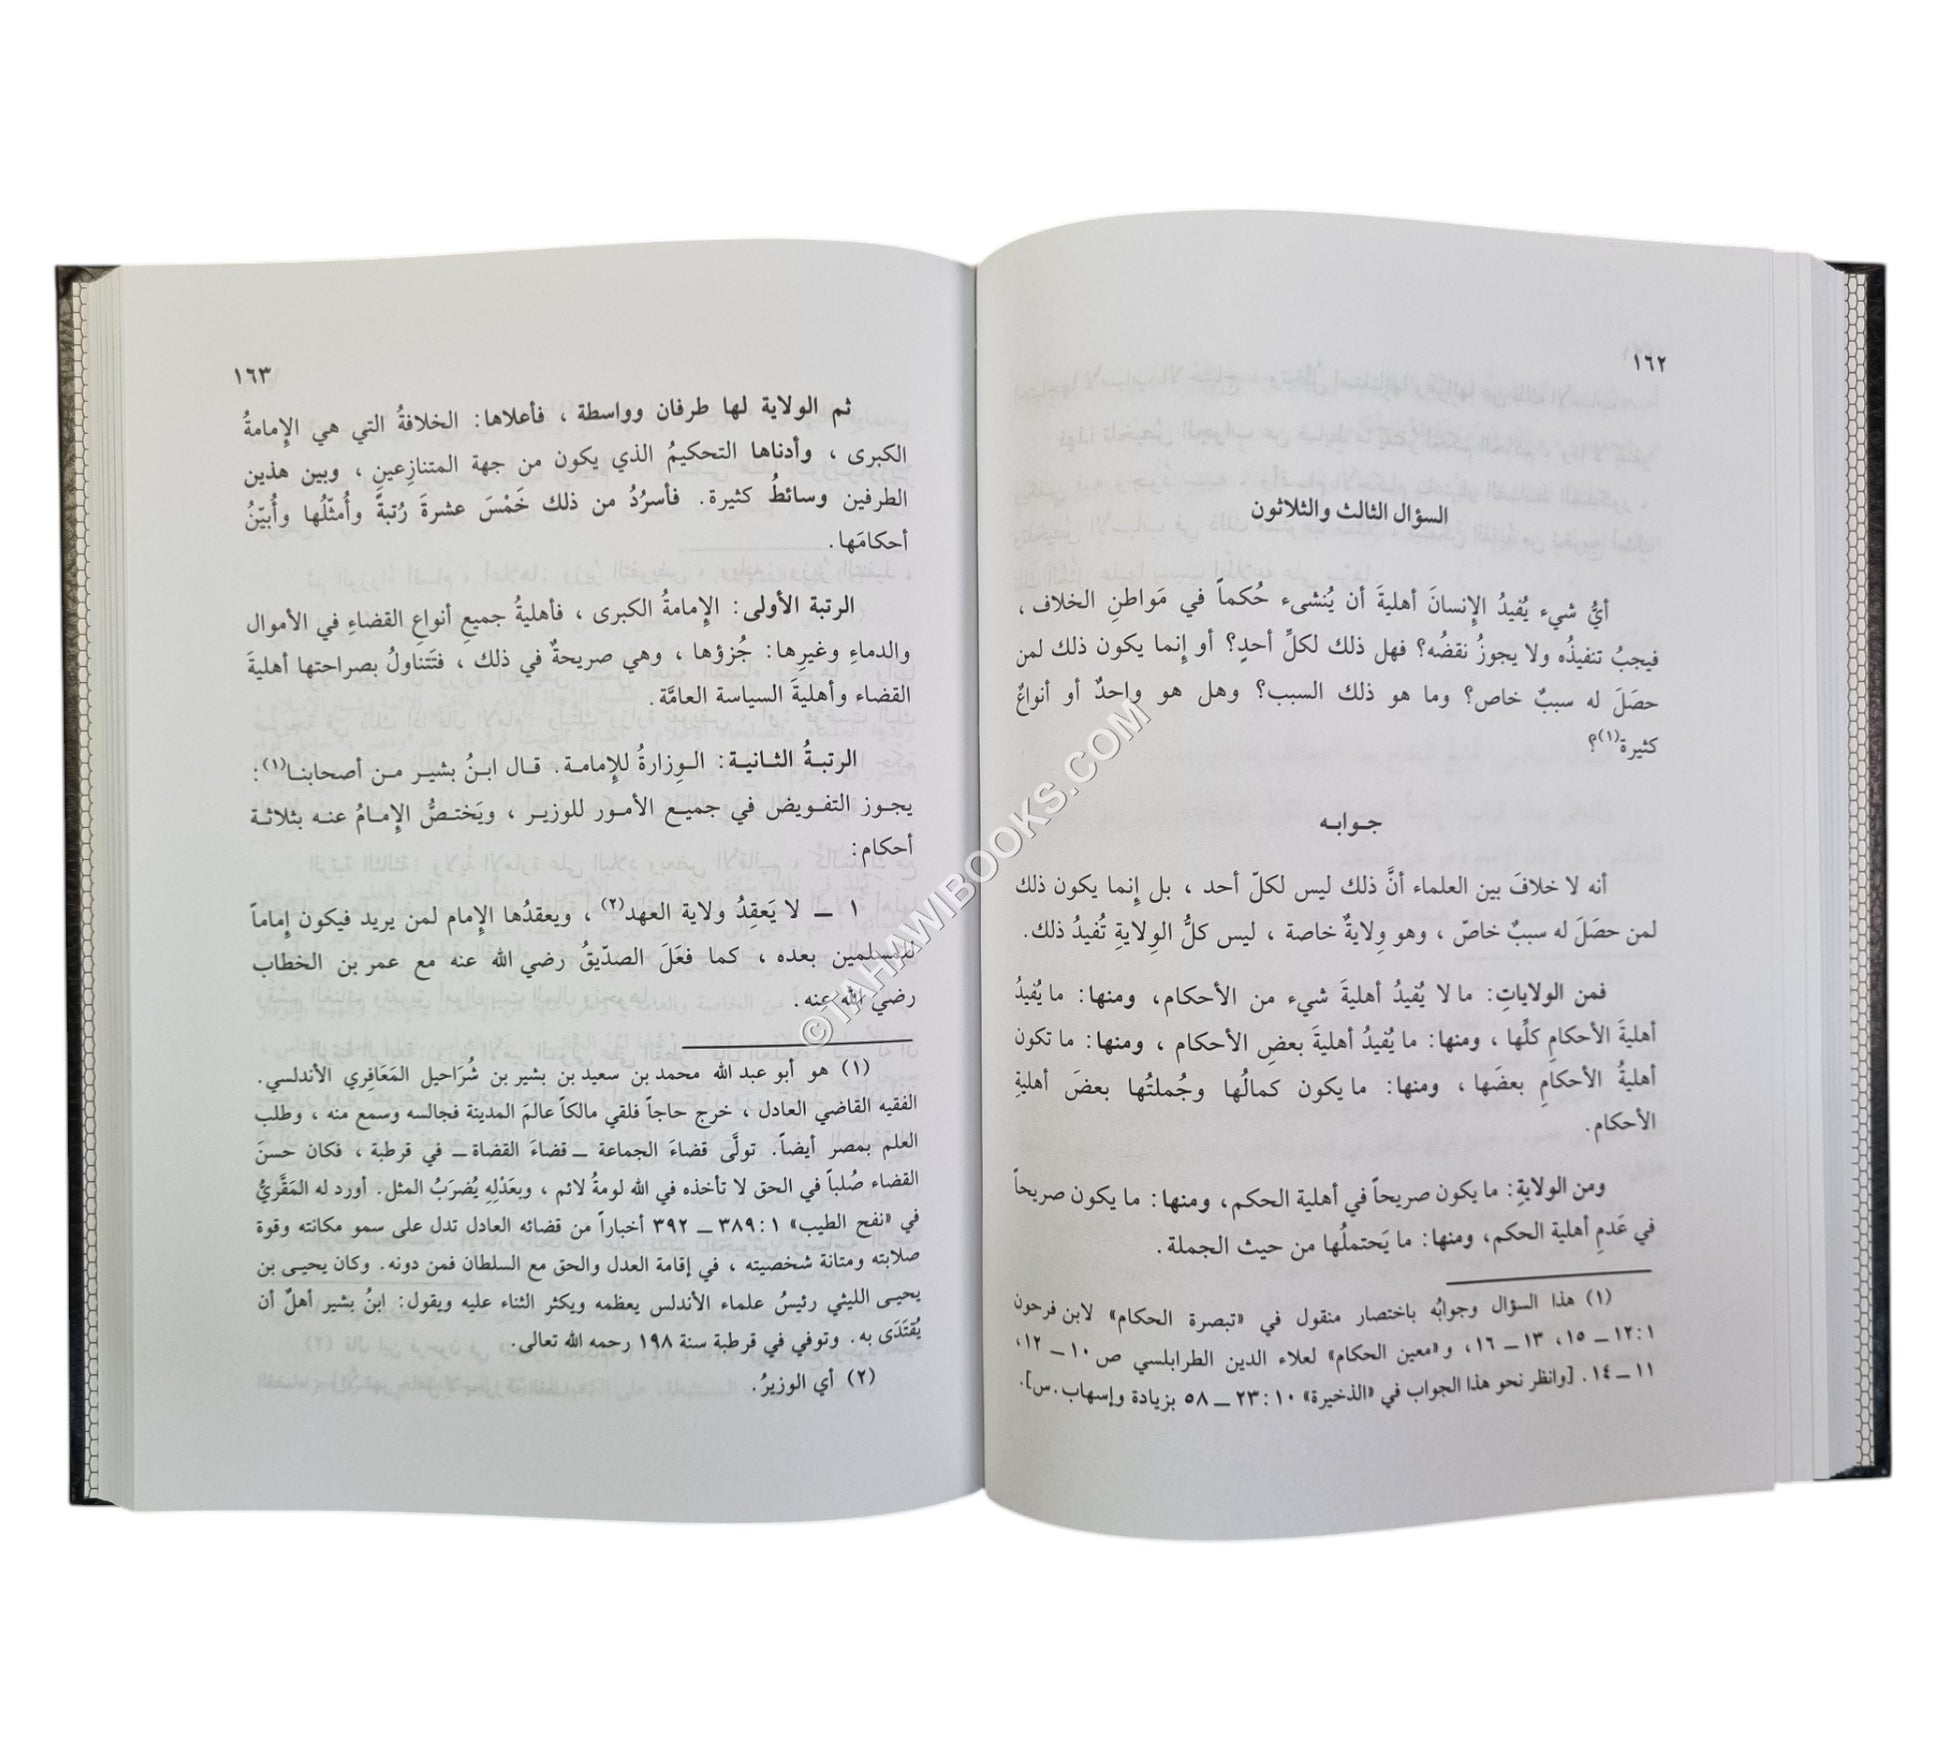 ١٦٢
السؤال الثالث والثلاثون
أيُّ شيء يُفيدُ الإنسانَ أهليةَ أن يُنشىء حُكماً في مَواطنِ الخلاف ،
فيجبُ تنفيذُه ولا يجوزُ نقضُه؟ فهل ذلك لكلِّ أحدٍ؟ أو إنما يكون ذلك لمن
حصَلَ له سببٌ خاص؟ وما هو ذلك السبب؟ وهل هو واحدٌ أو أنواعٌ
كثيرة(١)؟
جـوابـه
أنه لا خلافَ بين العلماء أنَّ ذلك ليس لكلّ أحد ، بل إنما يكون ذلك
لمن حصَلَ له سببٌ خاصّ ، وهو وِلايةٌ خاصة ، ليس كلُّ الوِلايةِ تُفيدُ ذلك.
فمن الولاياتِ: ما لا يُفيدُ أهليةَ شيء من الأحكام، ومنها: ما يُفيدُ
أهليةَ الأحكامِ كلِّها ، ومنها: ما يُفيدُ أهليةَ بعضِ الأحكام ، ومنها: ما تكون
أهليةُ الأحكامِ بعضَها ، ومنها: ما يكون كمالُها وجُملتُها بعضَ أهليةِ
الأحكام.
ومن الولايةِ: ما يكون صريحاً في أهلية الحكم، ومنها: ما يكون صريحاً
في عَدمِ أهلية الحكم، ومنها: ما يَحتملُها من حيث الجملة.
(١) هذا السؤال وجوابُه باختصار منقول في «تبصرة الحكام» لابن فرحون
١:١٢ ــ ١٥، ١٣ ــ ١٦، و«معين الحكام» لعلاء الدين الطرابلسي ص ١٠ ــ ١٢،
١١ ــ ١٤. [وانظر نحو هذا الجواب في «الذخيرة» ١٠:٢٣ ــ ٥٨ بزيادة وإسهاب.س].
١٦٣
ثم الولاية لها طرفان وواسطة ، فأعلاها: الخلافةُ التي هي الإمامةُ
الكبرى ، وأدناها التحكيمُ الذي يكون من جهة المتنازِعينِ ، وبين هذين
الطرفين وسائطُ كثيرة. فأسرُدُ من ذلك خَمْسَ عشرةَ رُتبةً وأُمثّلُها وأُبيّنُ
أحكامَها.
الرتبة الأولى: الإمامةُ الكبرى ، فأهليةُ جميعِ أنواعِ القضاءِ في الأموال
والدماءِ وغيرِها: جُزؤها ، وهي صريحةٌ في ذلك ، فتَتناولُ بصراحتها أهليةَ
القضاء وأهليةَ السياسة العامَّة.
الرتبـةُ الثـانيـة: الـوِزارةُ للإمامـة. قـال ابـنُ بشيـر مـن أصحابنـا(١):
يجـوز التفـويض في جميـع الأمـور للوزيـر ، ويَختـصُّ الإمـامُ عنـه بثلاثـة
أحكام:
١ ــ لا يَعقِدُ ولاية العهد(٢) ، ويعقدُها الإمام لمن يريد فيكون إماماً
للمسلمين بعده ، كما فعَلَ الصدّيقُ رضي الله عنه مع عمر بن الخطاب
رضي الله عنه.
(١) هو أبو عبد الله محمد بن سعيد بن بشير بن شُرَاحيل المَعَافِري الأندلسي.
الفقيه القاضي العادل ، خرج حاجاً فلقي مالكاً عالمَ المدينة فجالسه وسمع منه ، وطلب
العلم بمصر أيضاً. تولَّى قضاءَ الجماعة ــ قضاءَ القضاة ــ في قرطبة ، فكان حسنَ
القضاء صُلباً في الحق لا تأخذه في الله لومةُ لائم ، وبعَدْلِهِ يُضرَبُ المثل. أورد له المَقَّريُّ
في «نفح الطيب» ١:٣٨٩ ــ ٣٩٢ أخباراً من قضائه العادل تدل على سمو مكانته وقوة
صلابته ومتانة شخصيته ، في إقامة العدل والحق مع السلطان فمن دونه. وكان يحيـى بن
يحيـى الليثي رئيسُ علماء الأندلس يعظمه ويكثر الثناء عليه ويقول: ابنُ بشير أهلٌ أن
يُقتَدَى به. وتوفي في قرطبة سنة ١٩٨ رحمه الله تعالى.
(٢) أي الوزيرُ.
©TAHAWIBOOKS.COM